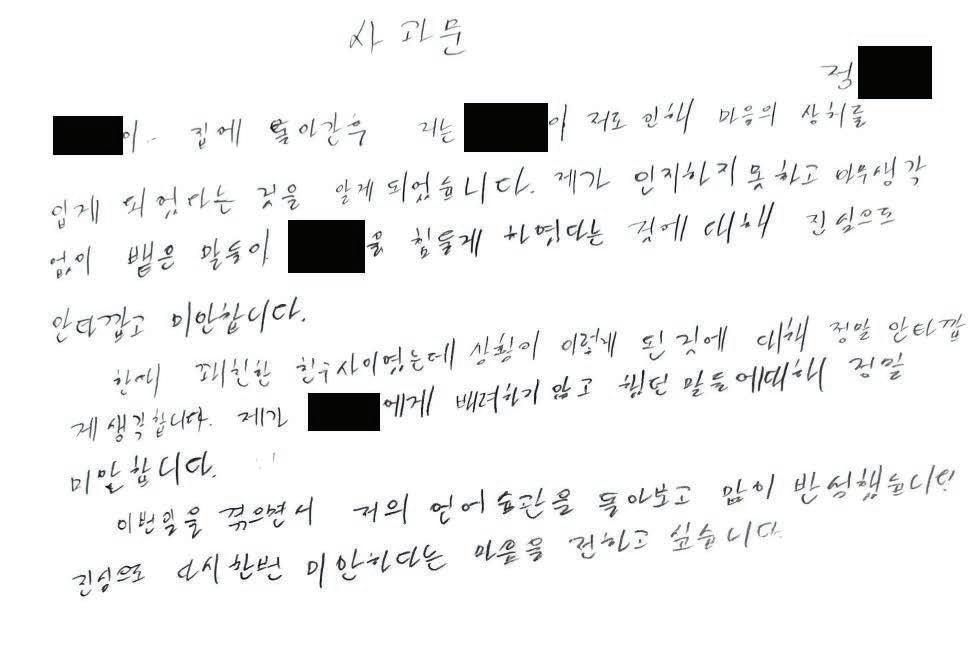 사과문
정
이 집에 돌아간후 저는 이 저로 인해 마음의 상처를
입게 되었다는 것을 알게 되었습니다. 제가 인지하지 못하고 아무생각
없이 뱉은 말들이 을 힘들게 하였다는 것에 대해 진심으로
안타깝고 미안합니다.
한때 꽤친한 친구사이였는데 상황이 이렇게 된것에 대해 정말 안타깝
게 생각합니다. 제가 에게 배려하지 않고 했던 말들에대해 정말
미안합니다.
이번일을 겪으면서 저의 언어습관을 돌아보고 많이 반성했습니다
진심으로 다시한번 미안하다는 마음을 전하고 싶습니다.